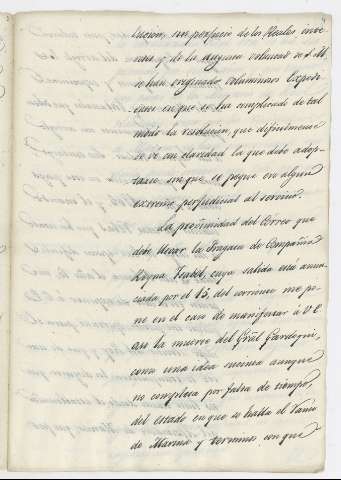 lucion, sin perjuicio de los Reales inte-
reses y de la augusta voluntad de S. M.
se han originado voluminosos Expedi-
entes en que se ha complicado de tal
modo la resolucion que dificilmente
se vé con claridad la que debe adop-
tarse sin que se peque en algun
extremo perjudicial al servicio.
La proximidad del Correo que
debe llevar la Fragata de Compañia
Reyna Isabel, cuya salida está anun-
ciada por el 15, del corriente me po-
ne en el caso de manifestar á V. E.
con la muerte del Gral Gardoqui,
como una idea aunque
no completa por falta de tiempo,
del estado en que se halla el Ramo
de Marina y terminos con que